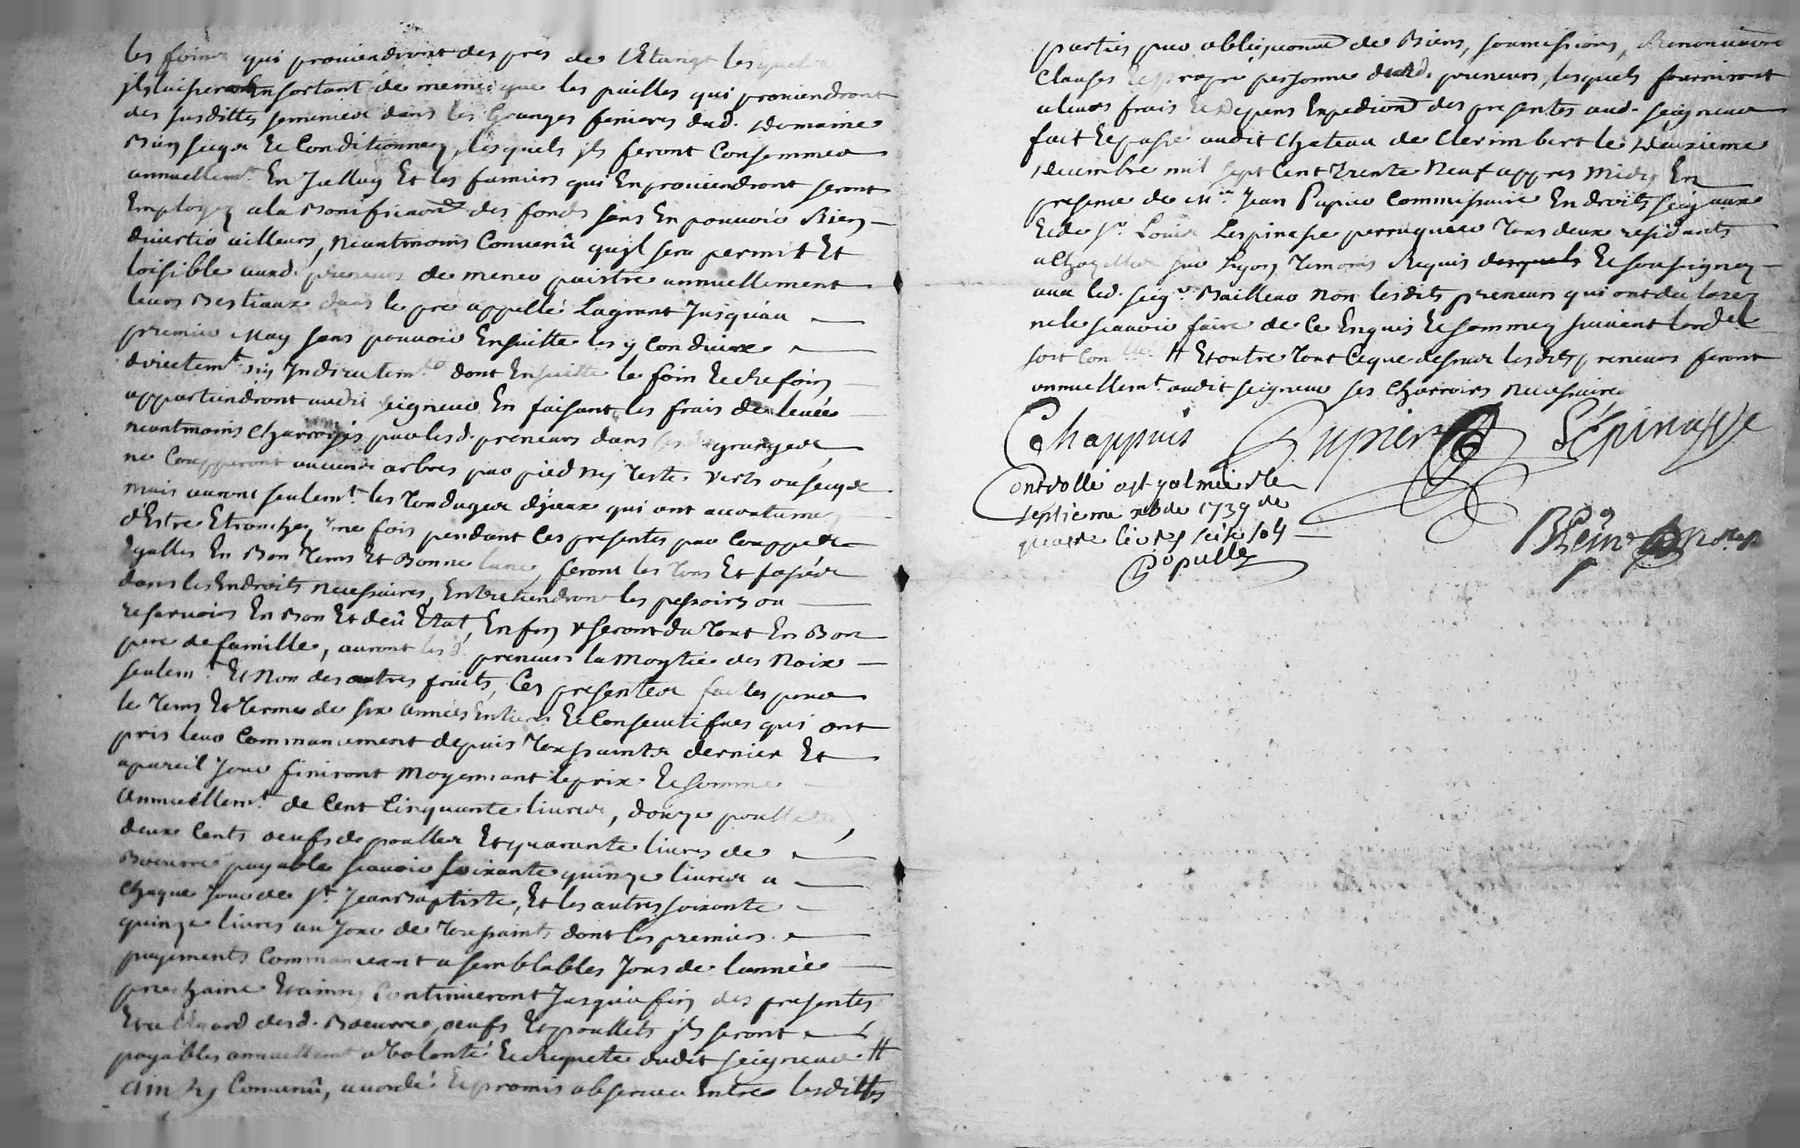 les foins qui proviendront des pres de l'Etangt lesquels
jls laisseront En sortant de meme que les pailles qui proviendront
des susdittes semences dans les Granges fenieres dud. Domaine
Bien secqs Et Conditionnez, lesquels jls feront Consommer
annuellemt. En Jcelluy Et les fumiers qui En proviendront seront
Employez a la Bonificaōn des fonds sans En pouvoir Rien
divertir ailleurs, Neantmoins Convenû qu'jl sera permit Et
loisible auxd. preneurs de mener paistre annuellement
leurs Bestiaux dans le pre appellé Lagrant Jusqu'au
premier May sans pouvoir Ensuitte les y Conduire
directemt. ny Jndirectemt. dont Ensuitte le foin Et refoin
appartiendront audit seigneur En faisant les frais de levée
neantmoins Charroyés par lesd. preneurs dans granges
ne Coupperont aucuns arbres par pied ny Teste verts ou secqs
mais auront seulemt. les Tondages d'jceux qui ont accoutumé
d'Estre Etronchez une fois pendant Ces presentes par Couppes
Egalles En Bon Tems Et Bonne lune, feront les Tous Et fossés
dans les Endroits necessaires, Entretiendront les pessoirs ou
reservoirs En Bon Et deû Etat, En fin useront du Tout En Bon
pere de famille, auront lesd. preneurs la Moytie des Noix
seulemt. Et Non des autres fruits, Ces presentes faittes pour
le Tems Et Terme de six années Entieres Et Consecutifves qui ont
pris leur Commancement depuis Toussaints dernier Et
a pareil Jour finiront Moyennant le prix Et somme
Annuellemt. de Cent Cinquante livres, douze poullets,
deux Cents oeufs de poulles Et quarante livres de
Boeurre payable scavoir soixante quinze livres a
Chaque Jour de St. Jean Baptiste, Et les autres soixante
quinze livres au Jour de Toussaints dont les premiers
payements Commanceront a semblables Jours de l'année
prochaine Et ainsy Continueront Jusqu'a fin des presentes
Et a l'Egard desd. Boeurre, oeufs Et poullets jls seront
payables annuellement a Volonté Et requete dudit seigneur #
Ainsy Convenû, accordé Et promis observer Entre lesdittes
parties par obligeaōns de Biens, soumissions, Renonciaōns
Clauses Et propre personne desd. preneurs, lesquels fourniront
a leurs frais Et Depens Expediōn des presentes aud. seigneur
fait Et passé audit Chateau de Clerimbert le deuxieme
decembre mil sept Cent Trente Neuf appres Midy En
presence de Mre. Jean Pupier Commissaire En droits seigneuriaux
Et de Sr. Louis Lespinasse perruquier Tous deux residants
a Chazelles sur Lyon Temoins Requis Et soussignez
avec led. seigr. Bailleur Non lesdits preneurs qui ont declarez
ne le scavoir faire de Ce Enquis Et sommez suivant l'ord.
soit Con # Et outre Tout Ce que dessus lesdits preneurs feront
annuellemt. audit seigneur ses Charroirs necessaires
Chappuis Pupier Lépinasse
Controllé a St galmier le
septieme xbre 1739 Re
quatre livres seize sols
Populle